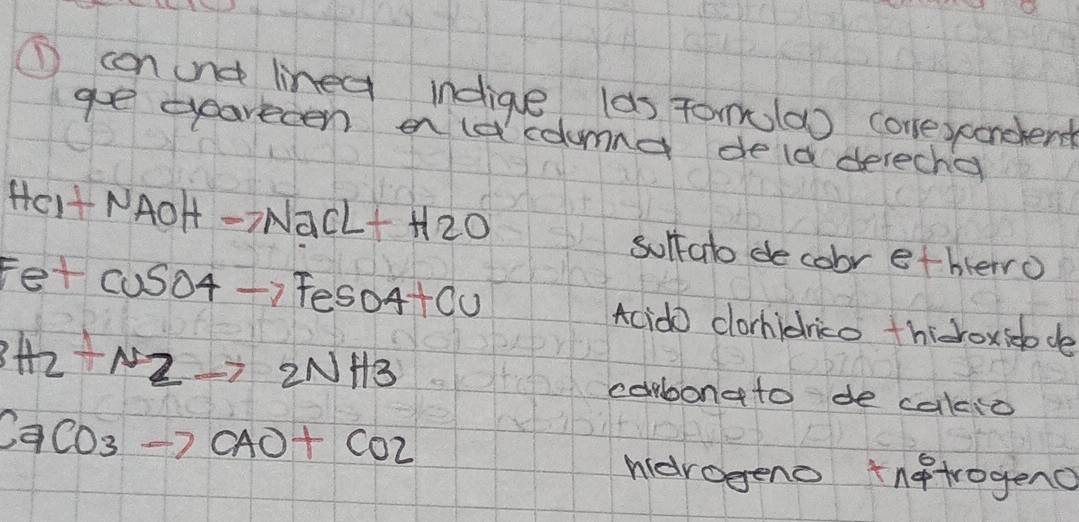 ① con una linea indique las formulas correspondient
que aparecen en la columna de la derecha
HCl + NAOH → NaCL + H2O
sulfato de cobre + hierro
Fe + CuSO4 → FeSO4 + CU
Acido clorhidrico + hidroxido de
3H2 + N2 → 2NH3
carbonato de calcio
CaCO3 → CAO + CO2
hidrogeno + nitrogeno